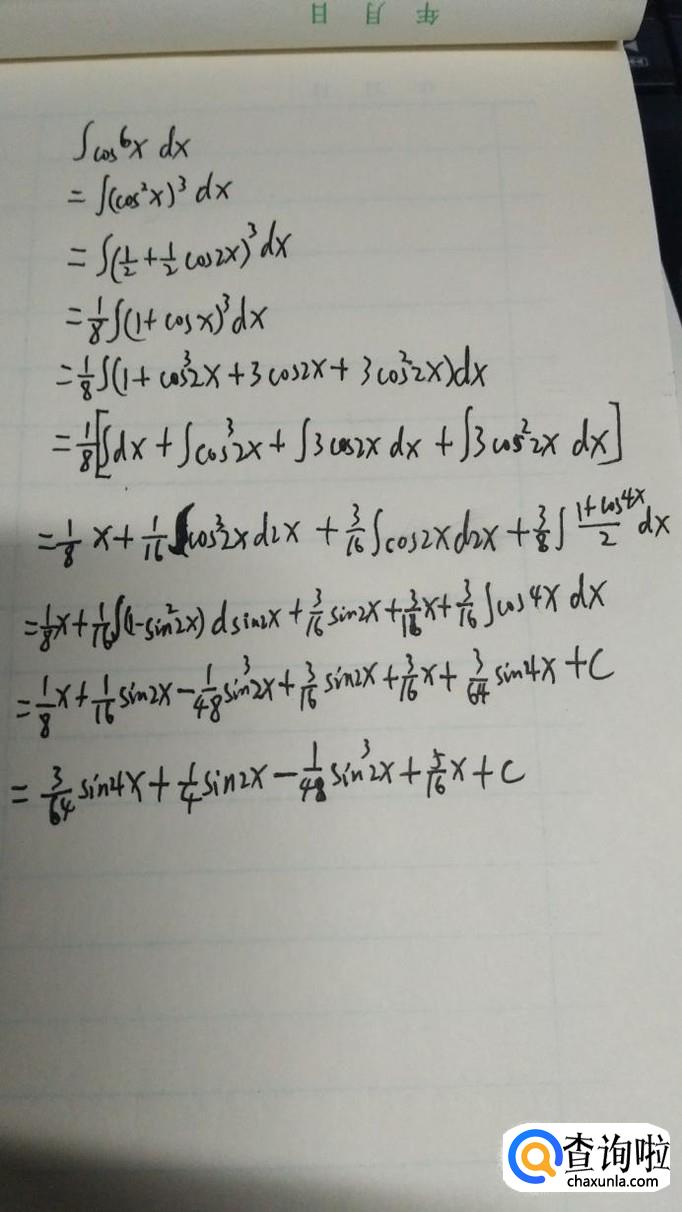 年 月 日
∫cos⁶x dx
= ∫(cos²x)³ dx
= ∫(1/2 + 1/2 cos2x)³ dx
= 1/8 ∫(1 + cosx)³ dx
= 1/8 ∫(1 + cos³2x + 3cos2x + 3cos²2x)dx
= 1/8 [∫dx + ∫cos³2x + ∫3cos2x dx + ∫3cos²2x dx]
= 1/8 x + 1/16 ∫cos³2x d2x + 3/16 ∫cos2x d2x + 3/8 ∫ (1+cos4x)/2 dx
= 1/8 x + 1/16 ∫(1-sin²2x) dsin2x + 3/16 sin2x + 3/16 x + 3/16 ∫cos4x dx
= 1/8 x + 1/16 sin2x - 1/48 sin³2x + 3/16 sin2x + 3/16 x + 3/64 sin4x + C
= 3/64 sin4x + 1/4 sin2x - 1/48 sin³2x + 5/16 x + C
查询啦
chaxunla.com